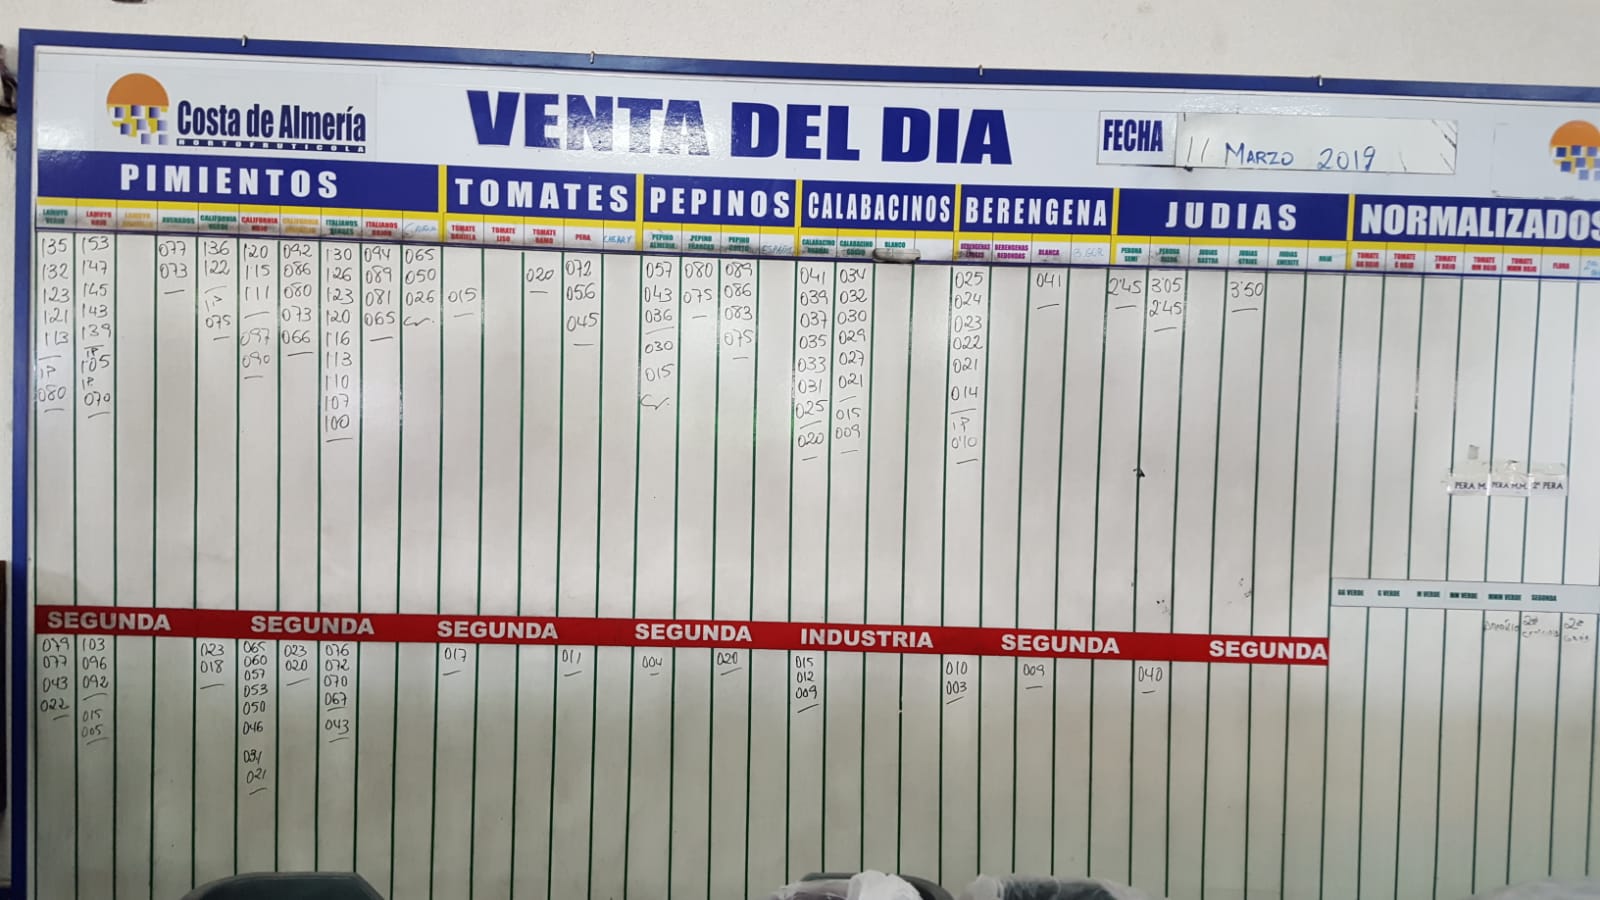 Costa de Almería
HORTOFRUTICOLA
VENTA DEL DIA
FECHA
11 MARZO 2019
PIMIENTOS TOMATES PEPINOS CALABACINOS BERENGENA JUDIAS NORMALIZADOS
LAMUYO VERDE LAMUYO ROJO LAMUYO ASURADOS CALIFORNIA VERDE CALIFORNIA ROJO CALIFORNIA ITALIANOS VERDES ITALIANOS ROJOS TOMATE DANIELA TOMATE LISO TOMATE RAMO PERA CHERRY PEPINO ALMERIA PEPINO FRANCES PEPINO CORTO ESPAÑOL CALABACINO CALABACINO GORDO BLANCO BERENGENAS BERENGENAS REDONDAS BLANCA PERONA SEMI PERONA JUDIAS RASTRA JUDIAS STRIKE JUDIAS EMERITE ROJO TOMATE GG ROJO TOMATE G ROJO TOMATE M ROJO TOMATE MM ROJO TOMATE MMM ROJO FLORA
135 153 077 136 120 092 130 094 065 020 072 057 080 089 041 034 025 041 2'45 3'05 3'50
132 147 073 122 115 086 126 089 050 015 056 043 075 086 039 032 024 2'45
123 145 1P 111 080 123 081 026 045 036 083 037 030 023
121 143 075 097 073 120 065 030 075 035 029 022
113 139 090 066 116 015 033 027 021
1P 1P 113 031 021 014
080 105 110 025 015 1P
1P 107 020 009 010
070 100
PERA M. PERA M.M. 2ª PERA
GG VERDE G VERDE M VERDE MM VERDE MMM VERDE SEGUNDA
SEGUNDA SEGUNDA SEGUNDA SEGUNDA INDUSTRIA SEGUNDA SEGUNDA
079 103 023 065 023 076 017 011 004 020 015 010 009 040
077 096 018 060 020 072 012 003
043 092 057 070 009
022 015 053 067
005 050 043
046
021